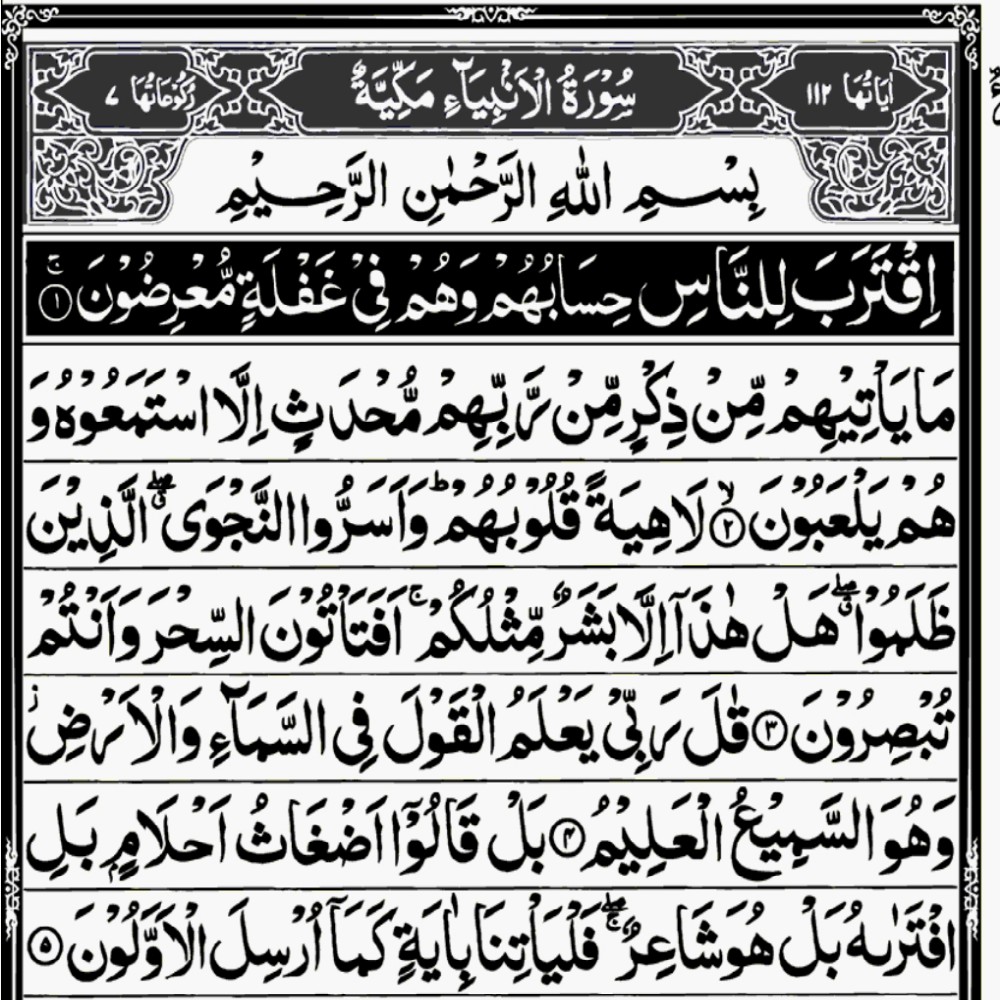 اٰيَاتُهَا ١١٢ سُوْرَةُ الْاَنْۢبِيَآءِ مَكِّيَّةٌ رُكُوْعَاتُهَا ٧
بِسْمِ اللّٰهِ الرَّحْمٰنِ الرَّحِيْمِ
اِقْتَرَبَ لِلنَّاسِ حِسَابُهُمْ وَهُمْ فِيْ غَفْلَةٍ مُّعْرِضُوْنَ ۚ ١
مَا يَاْتِيْهِمْ مِّنْ ذِكْرٍ مِّنْ رَّبِّهِمْ مُّحْدَثٍ اِلَّا اسْتَمَعُوْهُ وَ
هُمْ يَلْعَبُوْنَ ۙ ٢ لَاهِيَةً قُلُوْبُهُمْ ؕ وَاَسَرُّوا النَّجْوَى ۖۗ الَّذِيْنَ
ظَلَمُوْا ۖۗ هَلْ هٰذَآ اِلَّا بَشَرٌ مِّثْلُكُمْ ۚ اَفَتَاْتُوْنَ السِّحْرَ وَاَنْتُمْ
تُبْصِرُوْنَ ٣ قٰلَ رَبِّيْ يَعْلَمُ الْقَوْلَ فِي السَّمَآءِ وَالْاَرْضِ ز
وَهُوَ السَّمِيْعُ الْعَلِيْمُ ٤ بَلْ قَالُوْٓا اَضْغَاثُ اَحْلَامٍۢ بَلِ
افْتَرٰىهُ بَلْ هُوَ شَاعِرٌ ۖۚ فَلْيَاْتِنَا بِاٰيَةٍ كَمَآ اُرْسِلَ الْاَوَّلُوْنَ ٥